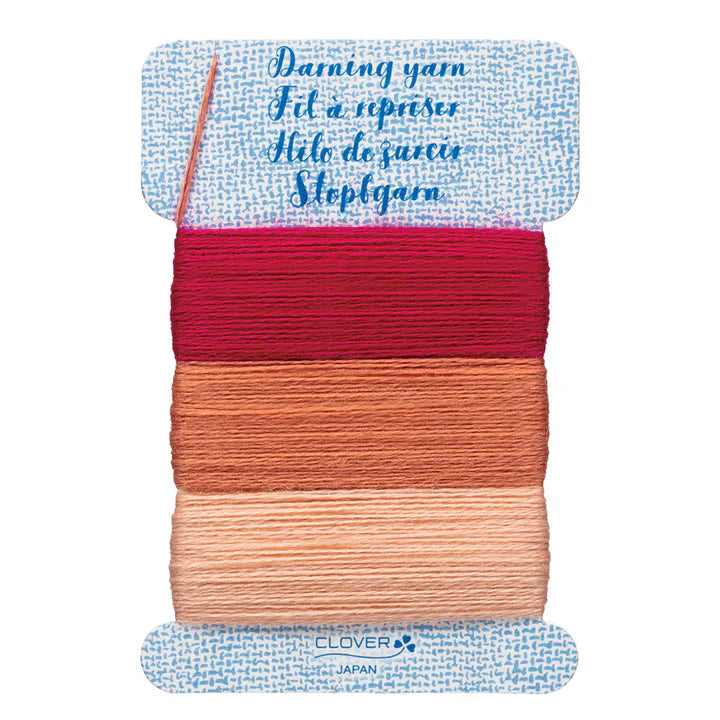 Darning yarn
Fil à repriser
Hilo de zurcir
Stopfgarn
CLOVER
JAPAN